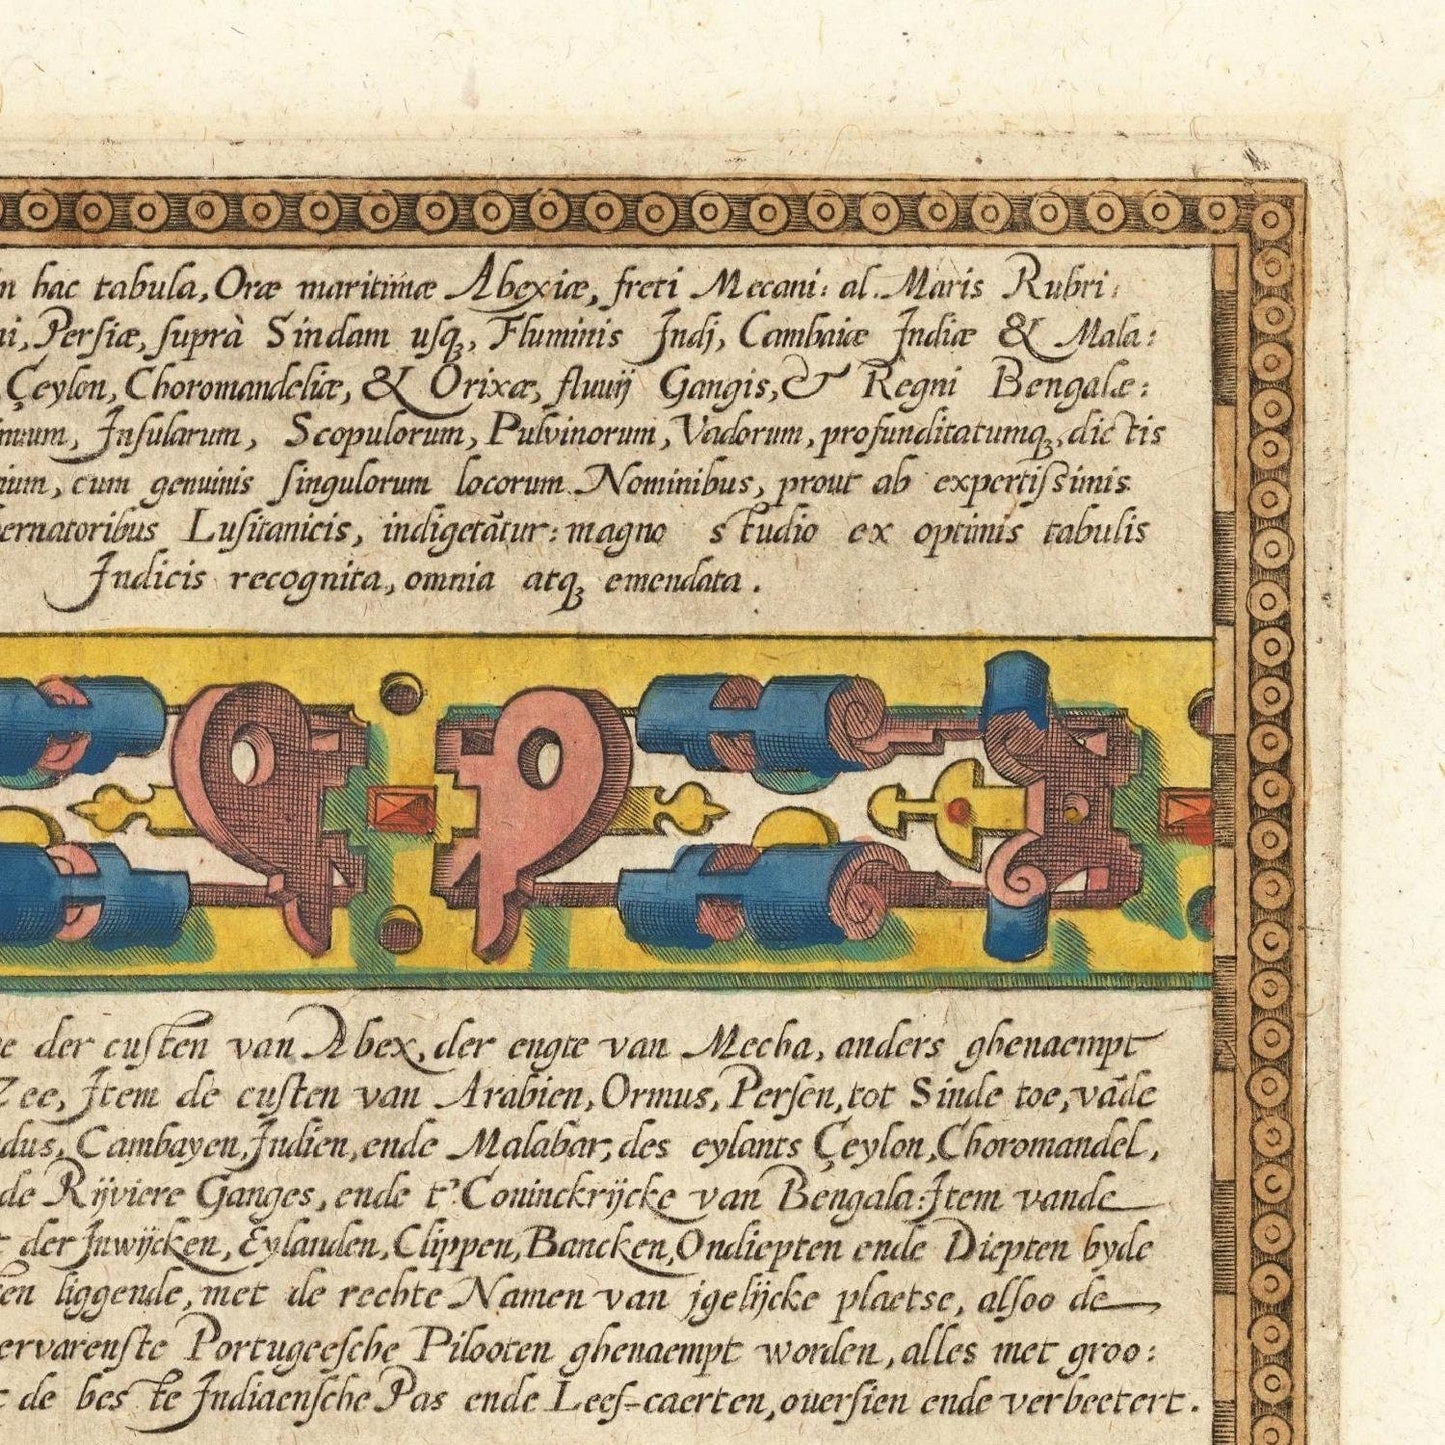 hac tabula, Oræ maritimæ Abexiæ, freti Mecani: al. Maris Rubri:
Persiæ, suprà Sindam usq3, Fluminis Indj, Cambaiæ Indiæ & Mala:
Çeylon, Choromandeliæ, & Orixæ, fluuij Gangis, & Regni Bengalæ:
Insularum, Scopulorum, Pulvinorum, Vadorum, profunditatumq3, dictis
cum genuinis singulorum locorum Nominibus, prout ab expertiſsimis
ernatoribus Lusitanicis, indigetãtur: magno studio ex optimis tabulis
Indicis recognita, omnia atq3 emendata.
der custen van Abex, der engte van Mecha, anders ghenaempt
Zee, Item de custen van Arabien, Ormus, Persen, tot Sinde toe, vãde
dus, Cambayen, Indien, ende Malabar, des eylants Çeylon, Choromandel,
de Rijviere Ganges, ende t'Coninckrijcke van Bengala: Item vande
der Inwijcken, Eylanden, Clippen, Bancken, Ondiepten ende Diepten byde
en liggende, met de rechte Namen van jgelijcke plaetse, alsoo de
ervarenste Portugeesche Pilooten ghenaempt worden, alles met groo:
de beste Indiaensche Pas ende Lees-caerten, ouersien ende verbeetert.